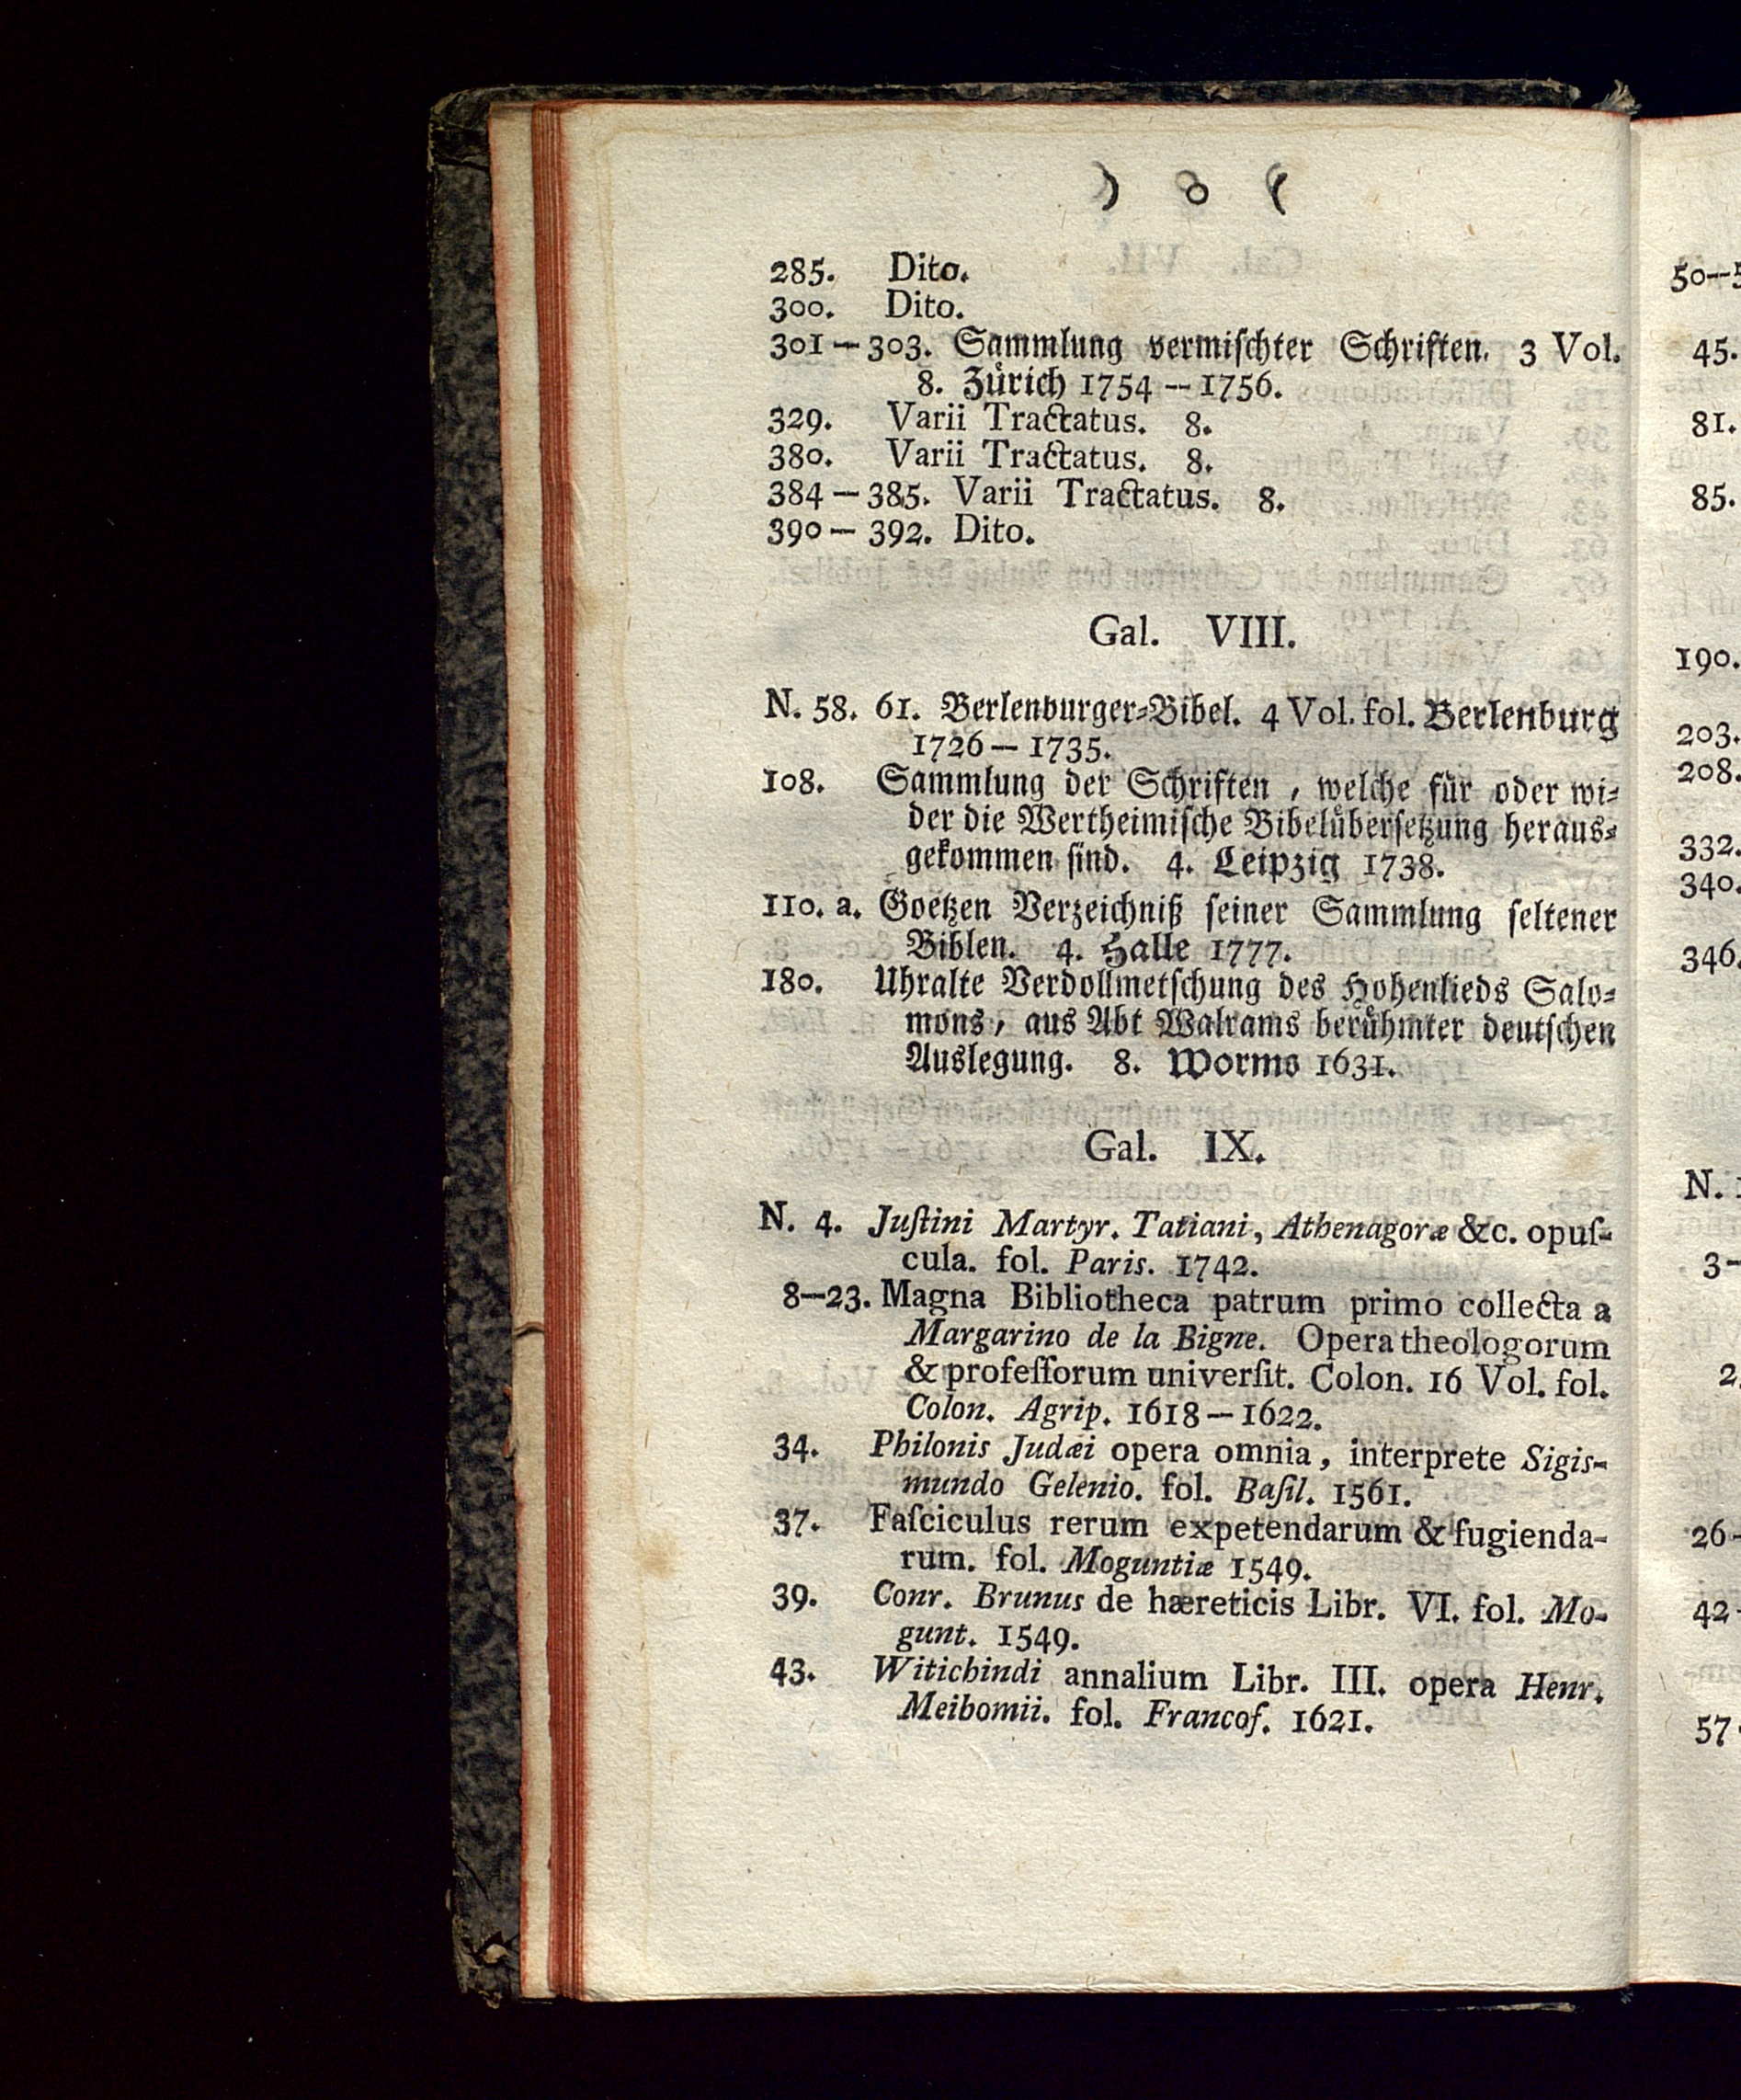 ) 8 (
285. Dito.
300. Dito.
301 — 303. Sammlung vermischter Schriften. 3 Vol.
8. Zürich 1754 — 1756.
329. Varii Tractatus. 8.
380. Varii Tractatus. 8.
384 — 385. Varii Tractatus. 8.
390 — 392. Dito.
Gal. VIII.
N. 58. 61. Berlenburger-Bibel. 4 Vol. fol. Berlenburg
1726 — 1735.
108. Sammlung der Schriften, welche für oder wi-
der die Wertheimische Bibelübersetzung heraus-
gekommen sind. 4. Leipzig 1738.
110. a. Goetzen Verzeichniß seiner Sammlung seltener
Biblen. 4. Halle 1777.
180. Uhralte Verdollmetschung des Hohenlieds Salo-
mons, aus Abt Walrams berühmter deutschen
Auslegung. 8. Worms 1631.
Gal. IX.
N. 4. Juſtini Martyr. Tatiani, Athenagoræ &c. opuſ-
cula. fol. Paris. 1742.
8—23. Magna Bibliotheca patrum primo collecta a
Margarino de la Bigne. Opera theologorum
& profeſſorum univerſit. Colon. 16 Vol. fol.
Colon. Agrip. 1618 — 1622.
34. Philonis Judæi opera omnia, interprete Sigis-
mundo Gelenio. fol. Baſil. 1561.
37. Faſciculus rerum expetendarum & fugienda-
rum. fol. Moguntiæ 1549.
39. Conr. Brunus de hæreticis Libr. VI. fol. Mo-
gunt. 1549.
43. Witichindi annalium Libr. III. opera Henr.
Meibomii. fol. Francof. 1621.
50—5
45.
81.
85.
190.
203.
208.
332.
340.
346.
N. 1
3—
2.
26—
42—
57—